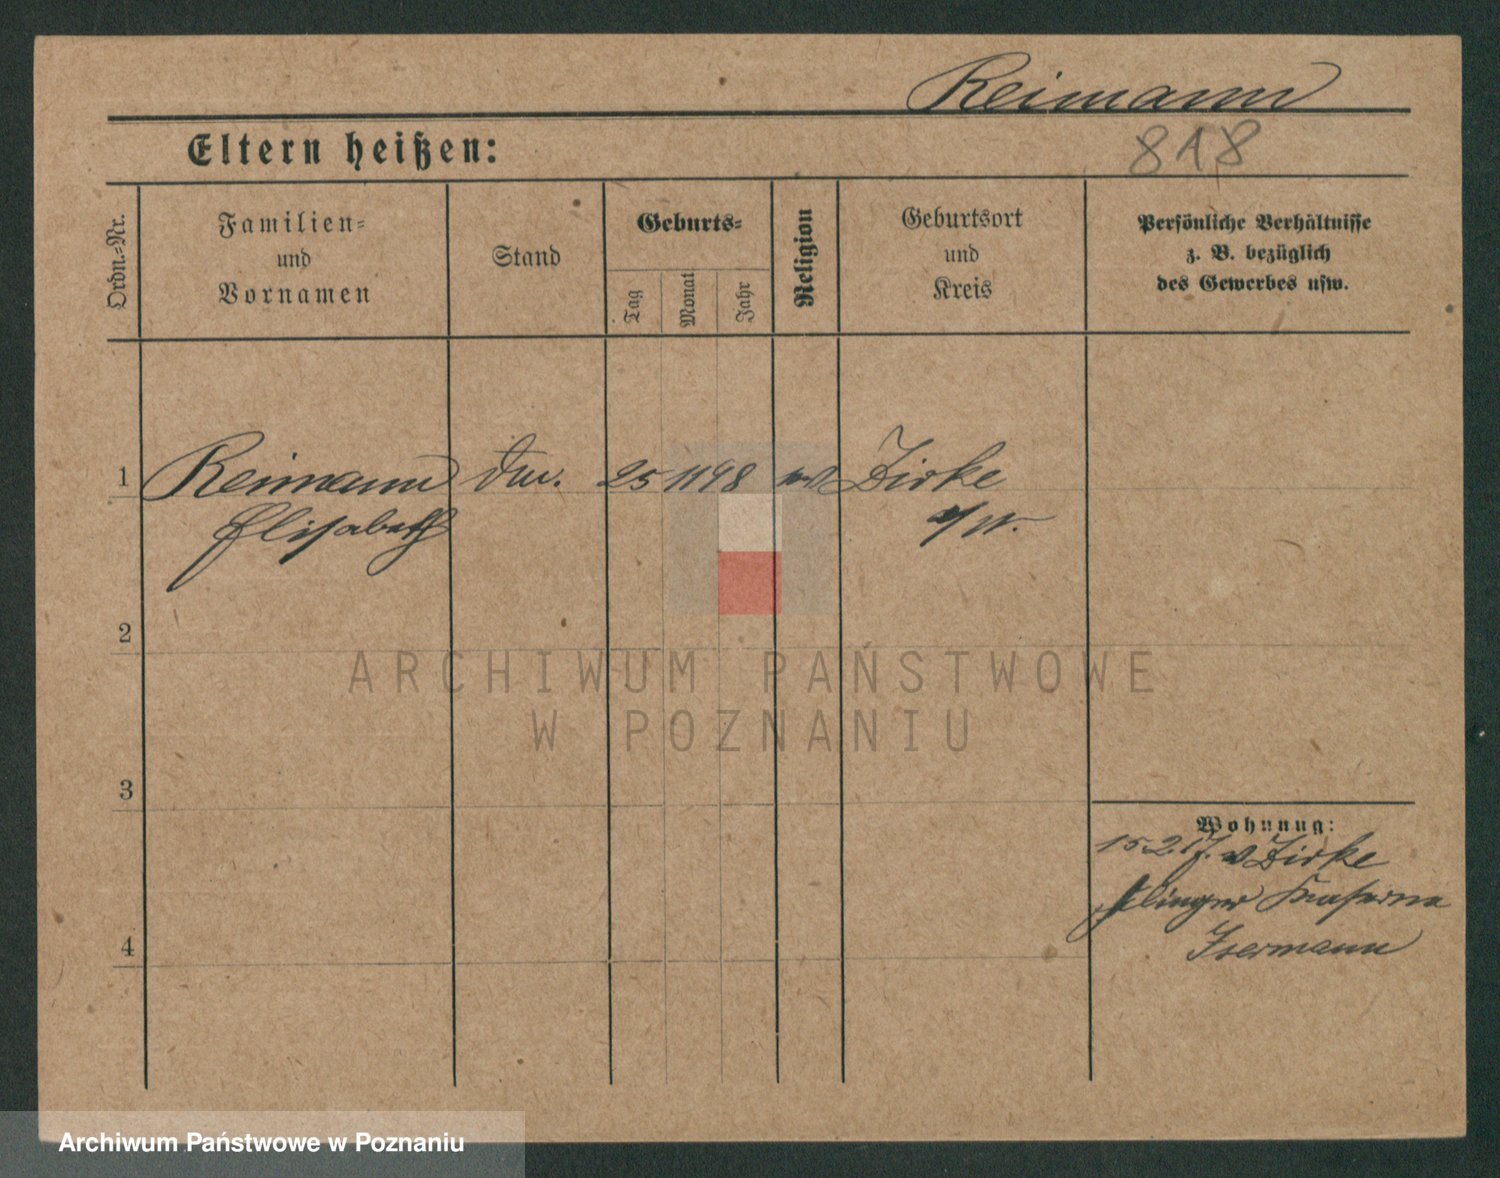 Reimann
Eltern heißen:
818
Ordn.-Nr.
Familien- und Vornamen
Stand
Geburts-
Tag
Monat
Jahr
Religion
Geburtsort und Kreis
Persönliche Verhältnisse
z. B. bezüglich
des Gewerbes usw.
1 Reimann 25 11 98 Zirke
Elisabeth a/W.
2
ARCHIWUM PAŃSTWOWE
W POZNANIU
3
Wohnung:
15.2.17. v Zirke
4
Isermann
Archiwum Państwowe w Poznaniu